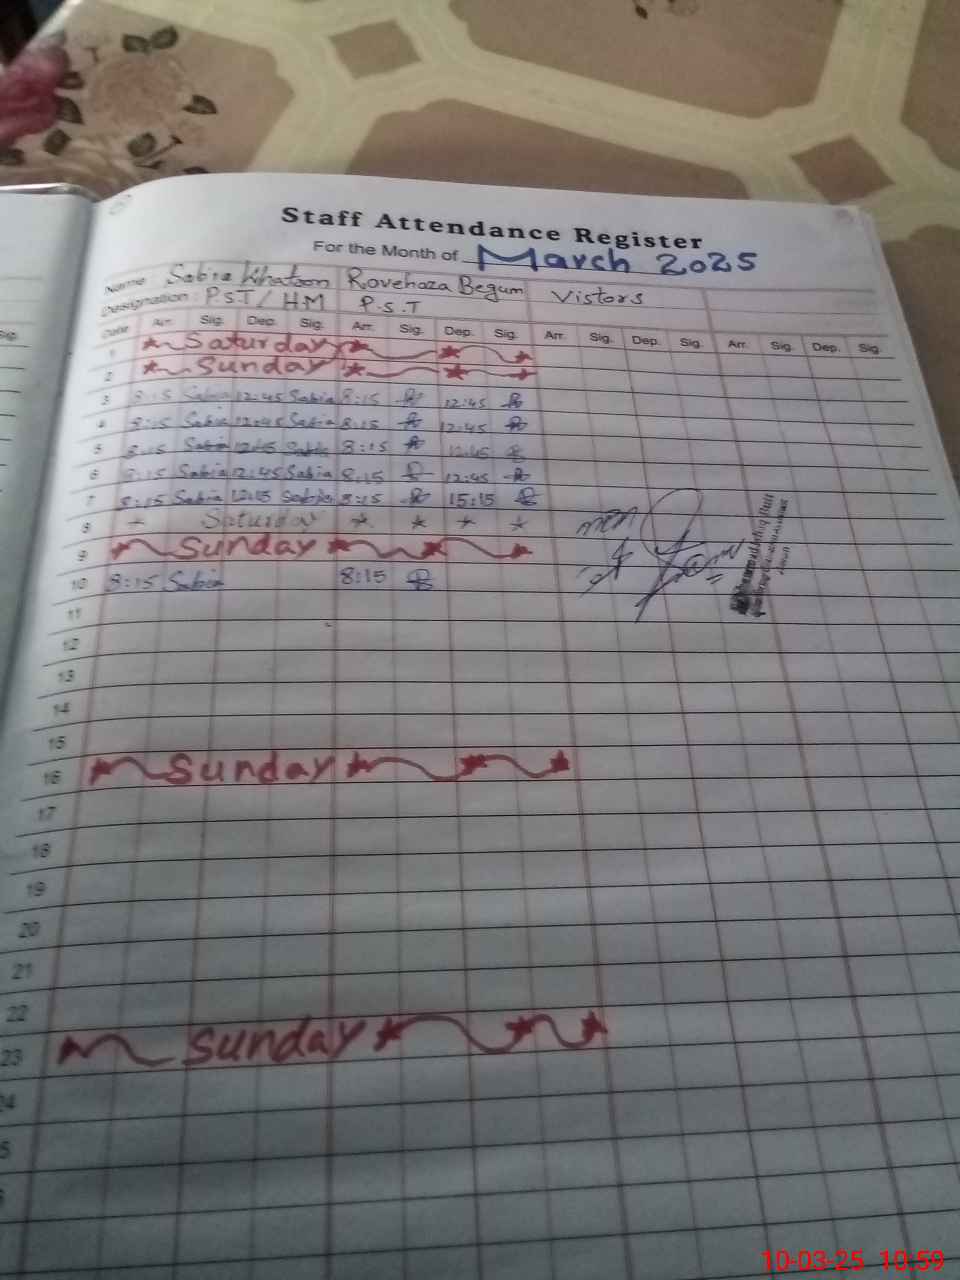 Staff Attendance Register
For the Month of March 2025
Name Sabira Khatoon Rovehaza Begum Vistors
Designation : PST/HM P.S.T
Date Arr. Sig. Dep. Sig. Arr. Sig. Dep. Sig. Arr. Sig. Dep. Sig. Arr. Sig. Dep. Sig.
1 Saturday
2 Sunday
3 8:15 Sabia 12:45 Sabia 8:15 12:45
4 8:15 Sabia 12:45 Sabia 8:15 12:45
5 8:15 Sabia 12:45 Sabia 8:15 12:45
6 8:15 Sabia 12:45 Sabia 8:15 12:45
7 8:15 Sabia 12:45 Sabia 8:15 15:15
8 Saturday
9 Sunday
10 8:15 Sabia 8:15
11
12
13
14
15
16 Sunday
17
18
19
20
21
22
23 Sunday
24
5
10-03-25 10:59